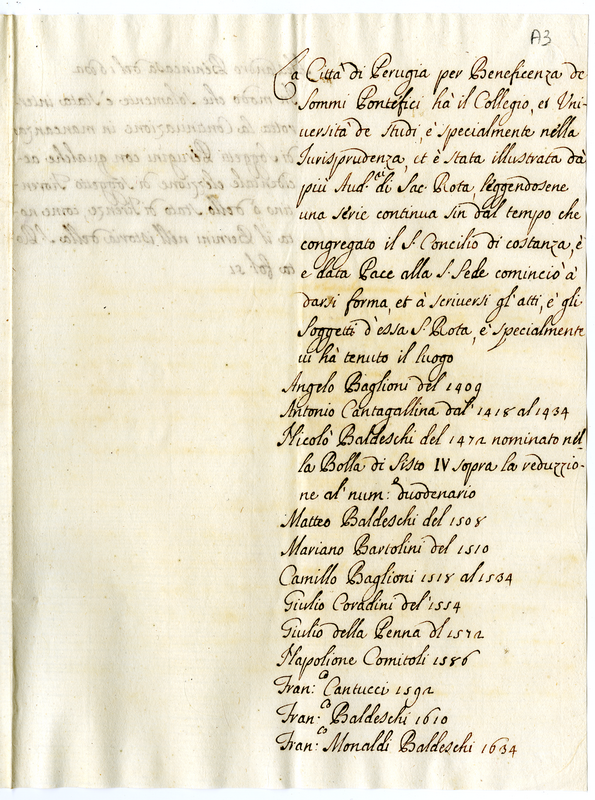 A3
La Città di Perugia per Beneficenza de
Sommi Pontefici hà il Collegio, et Uni-
uersità de Studi, è specialmente nella
Iurisprudenza, et è stata illustrata dà
più Aud.ri di Sac. Rota, leggendosene
una serie continua sin dal tempo che
congregato il S. Concilio di costanza, è
e data Pace alla S. Sede cominciò à
darsi forma, et à scriuersi gl'atti, è gli
Soggetti d'essa S. Rota, è specialmente
ui hà tenuto il luogo
Angelo Baglioni del 1409
Antonio Cantagallina dal' 1418 al 1434
Nicolò Baldeschi del 1472 nominato nel
la Bolla di Sisto IV sopra la reduzzio-
ne al' num: duodenario
Matteo Baldeschi del 1508
Mariano Bartolini del 1510
Camillo Baglioni 1518 al 1534
Giulio Coradini del' 1554
Giulio della Penna dl 1572
Napolione Comitoli 1586
Fran:co Cantucci 1592
Fran:co Baldeschi 1610
Fran:co Monaldi Baldeschi 1634